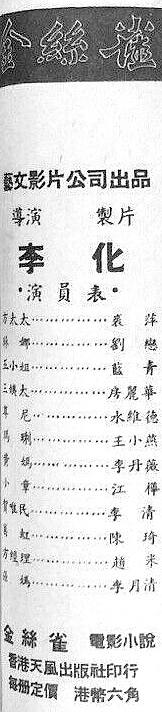 金絲雀
藝文影片公司出品
導演 製片
李化
·演員表·
方太太…………裘萍
絲娜…………劉戀
王小姐…………藍青
三姨太…………房麗華
尊尼…………水維德
瑪琍…………王小燕
黃媽…………李丹薇
小章…………江樺
賀維民…………李清
萬紅…………陳琦
方經理…………趙米
媽…………李月清
金絲雀 電影小說
香港天風出版社印行
每册定價 港幣六角